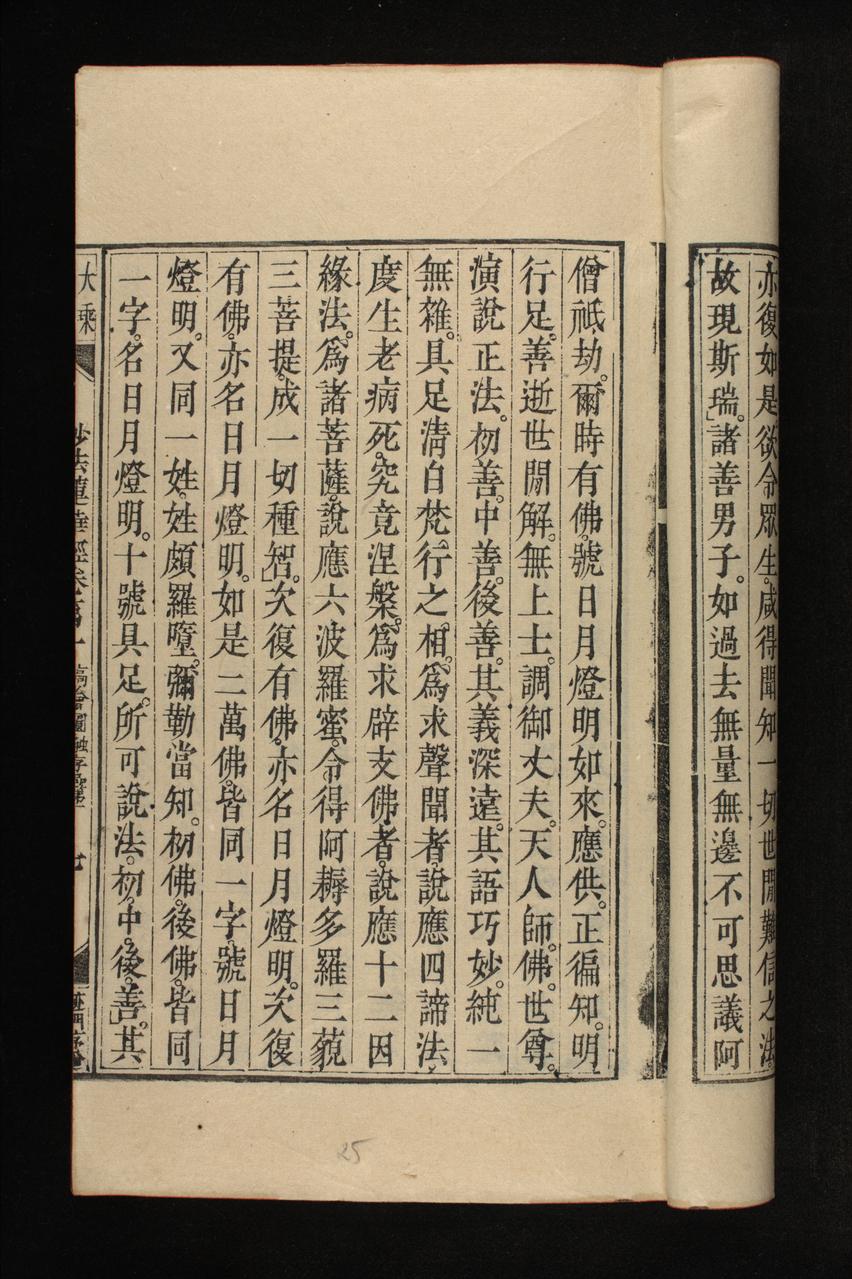 亦復如是。欲令眾生。咸得聞知一切世閒難信之法。
故現斯瑞。」諸善男子。如過去無量無邊不可思議阿
僧祇劫。爾時有佛。號日月燈明如來。應供。正徧知。明
行足。善逝世閒解。無上士。調御丈夫。天人師。佛。世尊。
演說正法。初善。中善。後善。其義深遠。其語巧妙。純一
無雜。具足淸白梵。行之。相。為求聲聞者。說應四諦法。
度生老病死。究竟涅槃。為求辟支佛者。說應十二因
緣法。為諸菩薩。說應六波羅蜜。令得阿耨多羅三藐
三菩提。成一切種智。」次復有佛。亦名日月燈明。次復
有佛。亦名日月燈明。如是二萬佛。皆同一字。號日月
燈明。又同一姓。姓頗羅墮。彌勒當知。初佛。後佛。皆同
一字。名日月燈明。十號具足。所可說法。初。中。後。善。」其
大乘 妙法蓮華經卷第一
25